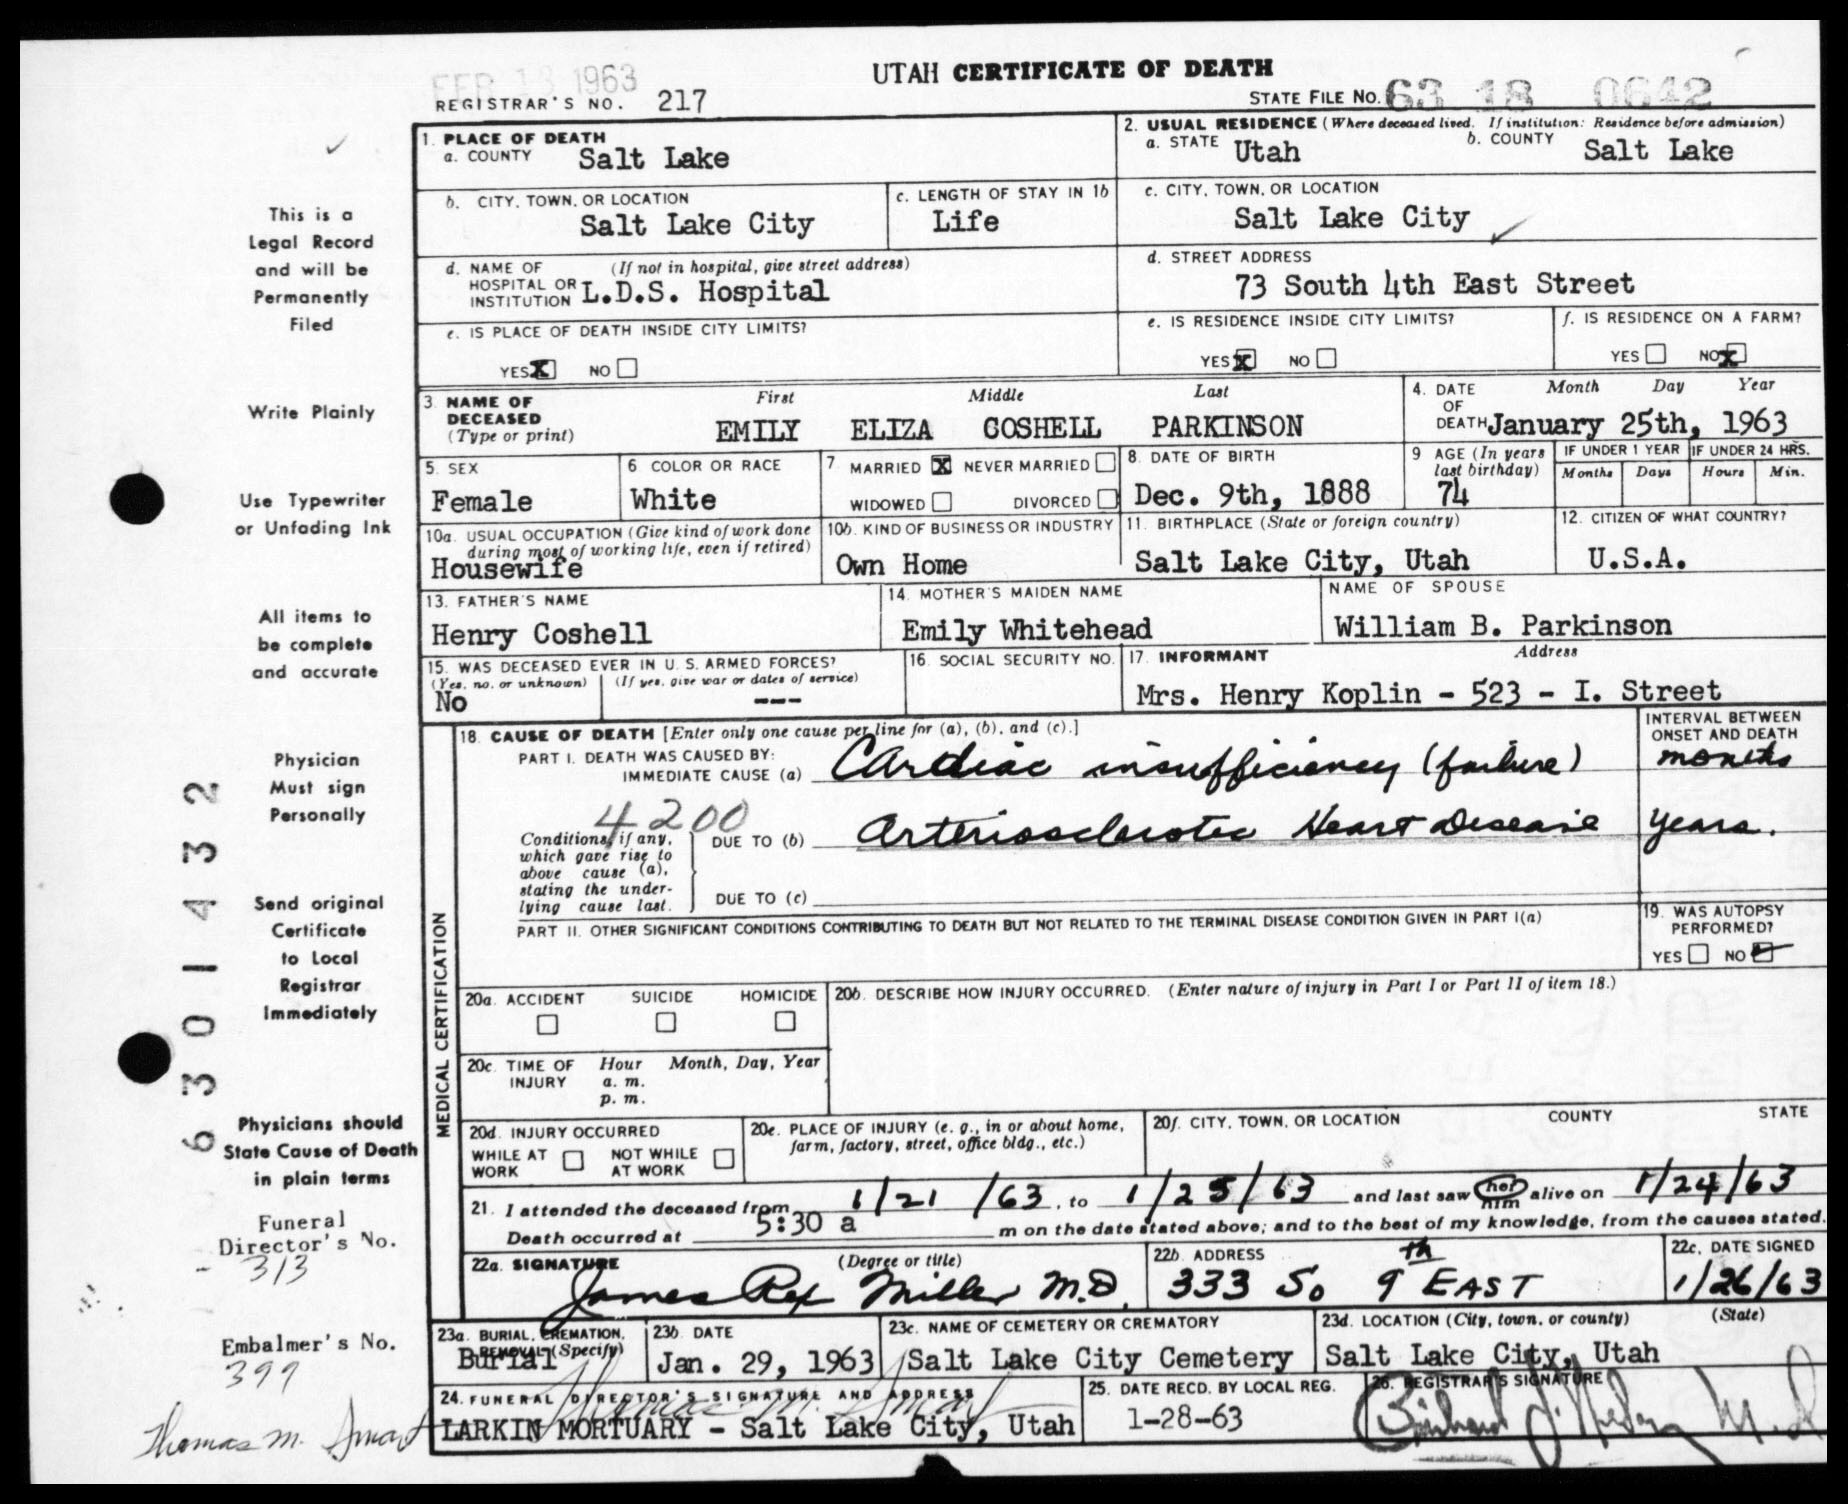 FEB 13 1963
UTAH CERTIFICATE OF DEATH
REGISTRAR'S NO. 217
STATE FILE NO. 63 18 0642
1. PLACE OF DEATH
a. COUNTY Salt Lake
2. USUAL RESIDENCE (Where deceased lived. If institution: Residence before admission)
a. STATE Utah b. COUNTY Salt Lake
b. CITY, TOWN, OR LOCATION
Salt Lake City
c. LENGTH OF STAY IN 1b
Life
c. CITY, TOWN, OR LOCATION
Salt Lake City
d. NAME OF HOSPITAL OR INSTITUTION (If not in hospital, give street address)
L.D.S. Hospital
d. STREET ADDRESS
73 South 4th East Street
e. IS PLACE OF DEATH INSIDE CITY LIMITS?
YES X NO
e. IS RESIDENCE INSIDE CITY LIMITS?
YES X NO
f. IS RESIDENCE ON A FARM?
YES NO X
3. NAME OF DECEASED (Type or print)
First Middle Last
EMILY ELIZA COSHELL PARKINSON
4. DATE OF DEATH Month Day Year
January 25th, 1963
5. SEX
Female
6 COLOR OR RACE
White
7 MARRIED X NEVER MARRIED
WIDOWED DIVORCED
8. DATE OF BIRTH
Dec. 9th, 1888
9 AGE (In years last birthday)
74
IF UNDER 1 YEAR
Months Days
IF UNDER 24 HRS.
Hours Min.
10a. USUAL OCCUPATION (Give kind of work done during most of working life, even if retired)
Housewife
10b. KIND OF BUSINESS OR INDUSTRY
Own Home
11. BIRTHPLACE (State or foreign country)
Salt Lake City, Utah
12. CITIZEN OF WHAT COUNTRY?
U.S.A.
13. FATHER'S NAME
Henry Coshell
14. MOTHER'S MAIDEN NAME
Emily Whitehead
NAME OF SPOUSE
William B. Parkinson
15. WAS DECEASED EVER IN U. S. ARMED FORCES?
(Yes, no, or unknown) (If yes, give war or dates of service)
No ---
16. SOCIAL SECURITY NO.
17. INFORMANT Address
Mrs. Henry Koplin - 523 - I. Street
MEDICAL CERTIFICATION
18. CAUSE OF DEATH [Enter only one cause per line for (a), (b), and (c).]
INTERVAL BETWEEN ONSET AND DEATH
PART I. DEATH WAS CAUSED BY:
IMMEDIATE CAUSE (a) Cardiac insufficiency (failure) months
4200
Conditions, if any, which gave rise to above cause (a), stating the underlying cause last.
DUE TO (b) Arteriosclerotic Heart Disease years.
DUE TO (c)
PART II. OTHER SIGNIFICANT CONDITIONS CONTRIBUTING TO DEATH BUT NOT RELATED TO THE TERMINAL DISEASE CONDITION GIVEN IN PART I(a)
19. WAS AUTOPSY PERFORMED?
YES NO
20a. ACCIDENT SUICIDE HOMICIDE
20b. DESCRIBE HOW INJURY OCCURRED. (Enter nature of injury in Part I or Part II of item 18.)
20c. TIME OF INJURY Hour Month, Day, Year
a. m.
p. m.
20d. INJURY OCCURRED
WHILE AT WORK NOT WHILE AT WORK
20e. PLACE OF INJURY (e. g., in or about home, farm, factory, street, office bldg., etc.)
20f. CITY, TOWN, OR LOCATION COUNTY STATE
21. I attended the deceased from 1/21/63, to 1/25/63 and last saw her him alive on 1/24/63
Death occurred at 5:30 a m on the date stated above; and to the best of my knowledge, from the causes stated.
22a. SIGNATURE (Degree or title)
James Rex Miller M.D.
22b. ADDRESS
333 So 9th EAST
22c. DATE SIGNED
1/26/63
23a. BURIAL, CREMATION, REMOVAL (Specify)
Burial
23b. DATE
Jan. 29, 1963
23c. NAME OF CEMETERY OR CREMATORY
Salt Lake City Cemetery
23d. LOCATION (City, town, or county) (State)
Salt Lake City, Utah
24. FUNERAL DIRECTOR'S SIGNATURE AND ADDRESS
Thomas M. Smart
LARKIN MORTUARY - Salt Lake City, Utah
25. DATE RECD. BY LOCAL REG.
1-28-63
26. REGISTRAR'S SIGNATURE
This is a
Legal Record
and will be
Permanently
Filed
Write Plainly
Use Typewriter
or Unfading Ink
All items to
be complete
and accurate
Physician
Must sign
Personally
Send original
Certificate
to Local
Registrar
Immediately
Physicians should
State Cause of Death
in plain terms
Funeral
Director's No.
313
Embalmer's No.
399
Thomas M. Smart
6301432